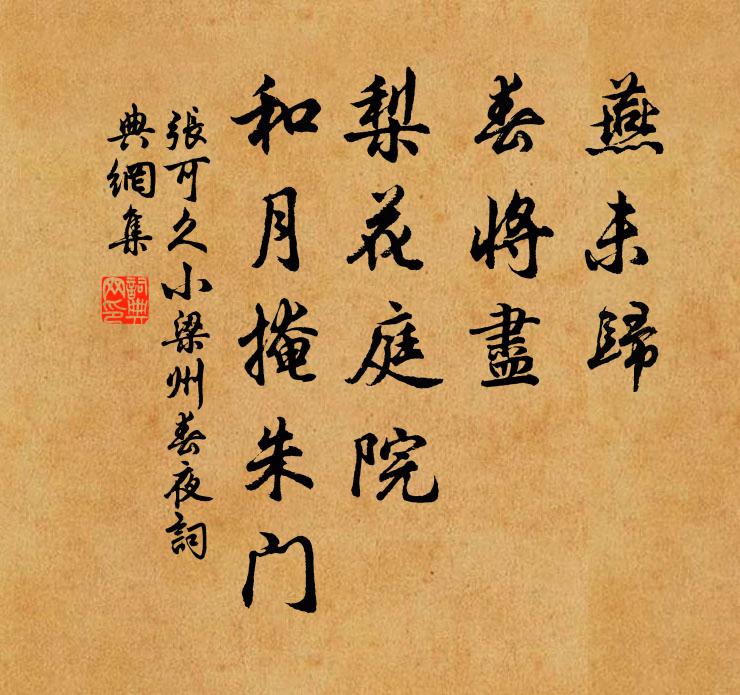 燕未歸
春將盡
梨花庭院
和月掩朱门
張可久小梁州春夜詞
典網集
詞典网印